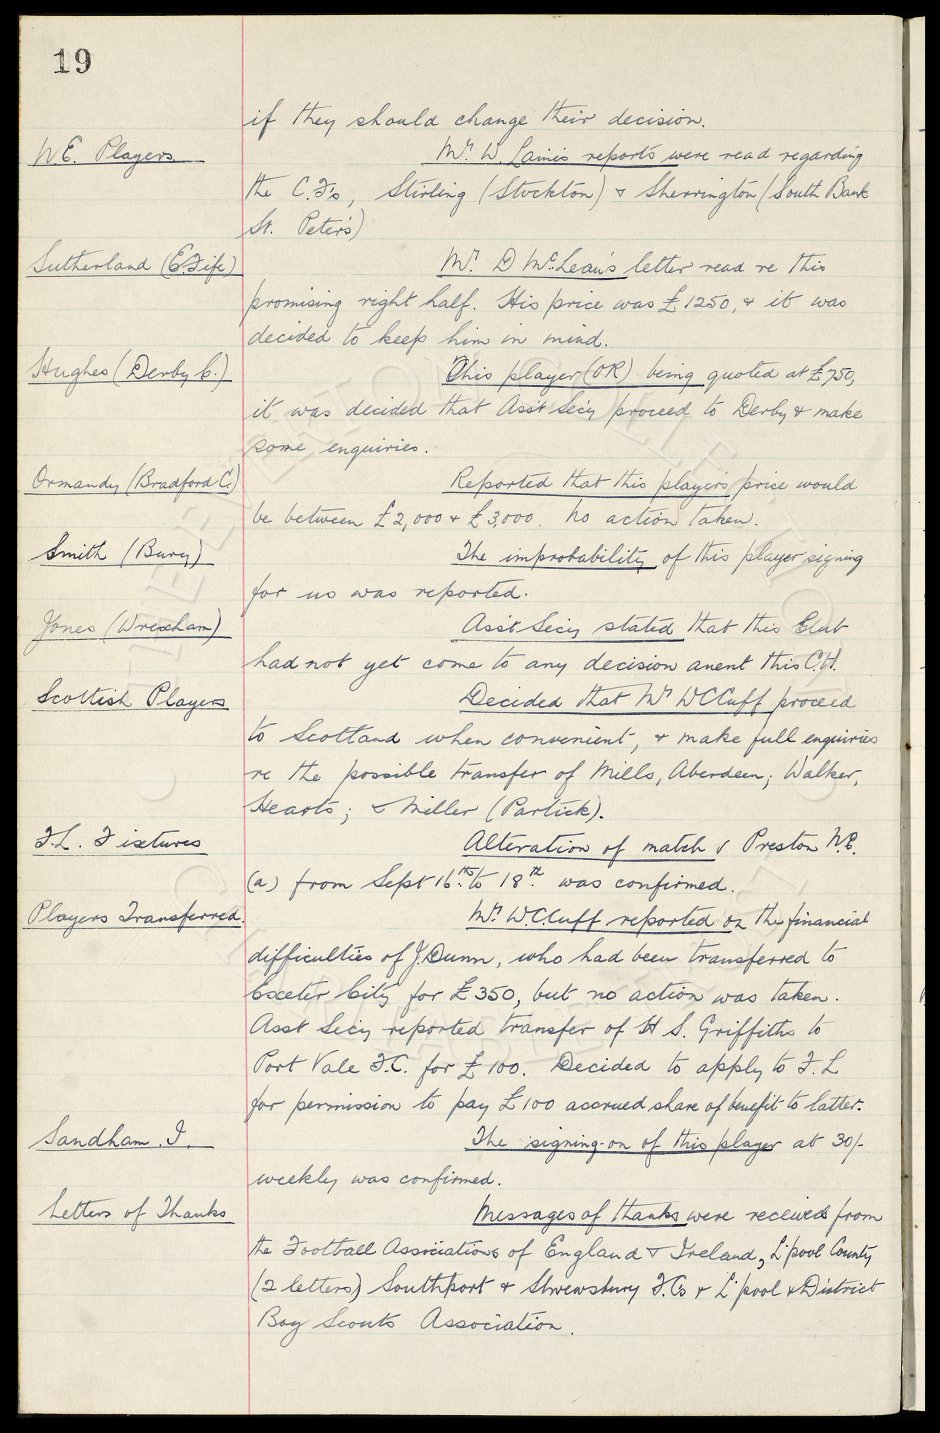 19
if they should change their decision.
N.E. Players
Mr. W. Laine's reports were read regarding
the C.F's, Stirling (Stockton) & Sherrington (South Bank
St. Peter's)
Sutherland (E. Fife)
Mr. D McLean's letter read re this
promising right half. His price was £1250, & it was
decided to keep him in mind.
Hughes (Derby C.)
This player (OR) being quoted at £750,
it was decided that Ass't Sec'y proceed to Derby & make
some enquiries.
Ormandy (Bradford C.)
Reported that this player's price would
be between £2,000 & £3,000. No action taken.
Smith (Bury)
The improbability of this player signing
for us was reported.
Jones (Wrexham)
Ass't Sec'y stated that this Club
had not yet come to any decision anent this C.H.
Scottish Players
Decided that Mr W C Cuff proceed
to Scotland when convenient, & make full enquiries
re the possible transfer of Mills, Aberdeen; Walker,
Hearts; & Miller (Partick).
F.L. Fixtures
Alteration of match v Preston N.E.
(a) from Sept 16th. to 18th. was confirmed.
Players Transferred.
Mr. W.C. Cuff reported on the financial
difficulties of J. Dunn, who had been transferred to
Exeter City for £350, but no action was taken.
Asst Sec'y reported transfer of H S. Griffiths to
Port Vale F.C. for £100. Decided to apply to F. L
for permission to pay £100 accrued share of benefit to latter.
Sandham. J.
The signing-on of this player at 30/-
weekly was confirmed.
Letters of Thanks
Messages of thanks were received from
the Football Associations of England & Ireland, L'pool County
(2 letters) Southport & Shrewsbury F.Cs & L'pool & District
Boy Scouts Association.